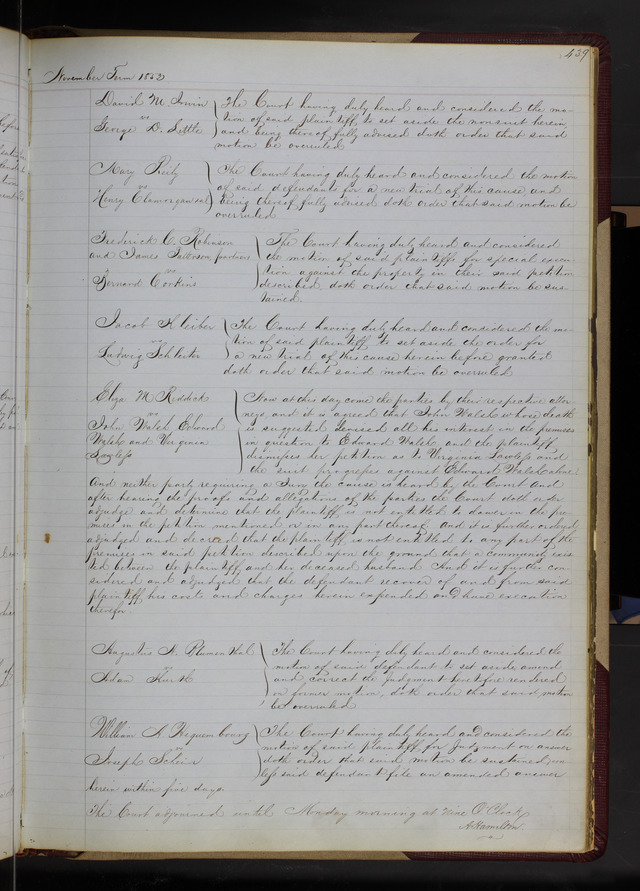 439
November Term 1853
David M. Irwin
vs
George D. Little
The Court having duly heard and considered the mo-
tion of said plaintiff to set aside the nonsuit herein
and being thereof fully advised doth order that said
motion be overruled
Mary Reily
vs
Henry Clamorgan et al
The Court having duly heard and considered the motion
of said defendants for a new trial of this cause, and
being thereof fully advised doth order that said motion be
overruled
Frederick C. Robinson
and James Patterson, partners
vs
Bernard Corkins
The Court having duly heard and considered
the motion of said plaintiffs for special execu-
tion against the property in their said petition
described doth order that said motion be sus-
tained
Jacob Kleiber
vs
Ludwig Schleiter
The Court having duly heard and considered the mo-
tion of said plaintiff to set aside the order for
a new trial of this cause herein before granted
doth order that said motion be overruled
Eliza M Reddick
vs
John Walsh, Edward
Walsh and Virginia
Lawless
Now at this day come the parties by their respective attor-
neys, and it is agreed that John Walsh whose death
is suggested devised all his interest in the premises
in question to Edward Walsh, and the plaintiff
dismisses her petition as to Virginia Lawless and
the suit progresses against Edward Walsh alone
And neither party requiring a Jury the cause is heard by the Court and
after hearing the proofs and allegations of the parties the Court doth order
adjudge and determine that the plaintiff is not entitled to dower in the pre-
mises in the petition mentioned or in any part thereof. And it is further ordered
adjudged and decreed that the plaintiff is not entitled to any part of the
premises in said petition described upon the ground that a community exis-
ted between the plaintiff and her deceased husband. And it is further con-
sidered and adjudged that the defendant recover of and from said
plaintiff his costs and charges herein expended and have execution
therefor
Augustus N. Blumenthal
vs
Adam Kurth
The Court having duly heard and considered the
motion of said defendant to set aside, amend
and correct the judgment heretofore rendered
on former motion, doth order that said motion
be overruled
William A. Hequembourg
vs
Joseph
The Court having duly heard and considered the
motion of said plaintiff for Judgment on answer
doth order that said motion be sustained un-
less said defendant file an amended answer
herein within five days.
The Court adjourned until Monday morning at nine O'Clock
A. Hamilton